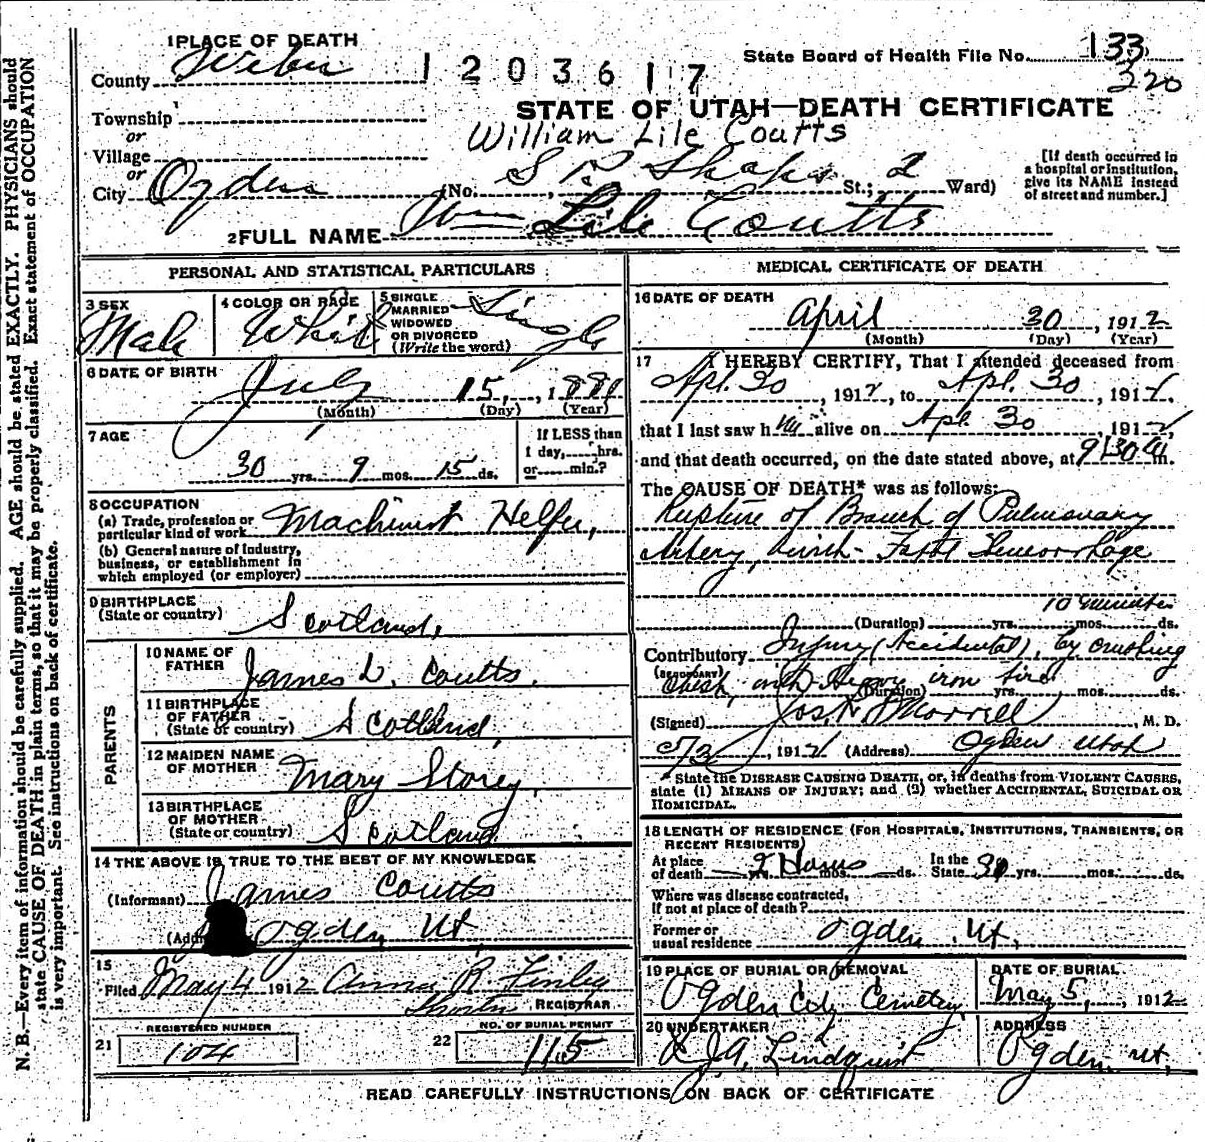 1 PLACE OF DEATH
County Weber
1203617
State Board of Health File No. 133
320
STATE OF UTAH—DEATH CERTIFICATE
Township
or
Village
or
City Ogden
William Lile Coutts
(No. S P Shops St.; 2 Ward)
[If death occurred in
a hospital or institution,
give its NAME instead
of street and number.]
2 FULL NAME Wm Lile Coutts
PERSONAL AND STATISTICAL PARTICULARS
3 SEX
Male
4 COLOR OR RACE
White
5 SINGLE
MARRIED
WIDOWED
OR DIVORCED
(Write the word)
Single
6 DATE OF BIRTH
July 15, 1881
(Month) (Day) (Year)
7 AGE
30 yrs. 9 mos. 15 ds.
If LESS than
1 day, hrs.
or min.?
8 OCCUPATION
(a) Trade, profession or
particular kind of work Machinist Helper,
(b) General nature of Industry,
business, or establishment in
which employed (or employer)
9 BIRTHPLACE
(State or country)
Scotland,
PARENTS
10 NAME OF
FATHER
James D. Coutts.
11 BIRTHPLACE
OF FATHER
(State or country)
Scotland,
12 MAIDEN NAME
OF MOTHER
Mary Storey,
13 BIRTHPLACE
OF MOTHER
(State or country)
Scotland
14 THE ABOVE IS TRUE TO THE BEST OF MY KNOWLEDGE
(Informant) James Coutts
(Addr Ogden Ut,
15
Filed May 4 1912 Anna R Finley
REGISTRAR
REGISTERED NUMBER
21 104
NO. OF BURIAL PERMIT
22 115
MEDICAL CERTIFICATE OF DEATH
16 DATE OF DEATH
April 30, 1912
(Month) (Day) (Year)
17 I HEREBY CERTIFY, That I attended deceased from
Apl. 30, 1912, to Apl. 30, 1912,
that I last saw him alive on Apl 30, 1912,
and that death occurred, on the date stated above, at 9:30 a m.
The CAUSE OF DEATH* was as follows:
Rupture of Branch of Pulmonary
Artery, with Fatal Hemorrhage
10 minutes
(Duration) yrs. mos. ds.
Contributory Injury (Accidental), by crushing
(SECONDARY) Chest, with Heavy iron tire
(Duration) yrs. mos. ds.
(Signed) Jos R Morrell, M. D.
5/3/, 1912 (Address) Ogden Utah
*State the DISEASE CAUSING DEATH, or, in deaths from VIOLENT CAUSES,
state (1) MEANS OF INJURY; and (2) whether ACCIDENTAL, SUICIDAL OR
HOMICIDAL.
18 LENGTH OF RESIDENCE (FOR HOSPITALS, INSTITUTIONS, TRANSIENTS, OR
RECENT RESIDENTS)
At place
of death 2 Hours mos. ds.
In the
State 30 yrs. mos. ds.
Where was disease contracted,
if not at place of death?
Former or
usual residence Ogden Ut,
19 PLACE OF BURIAL OR REMOVAL
Ogden City Cemetery,
DATE OF BURIAL
May 5, 1912
20 UNDERTAKER
J A Lindquist
ADDRESS
Ogden Ut,
READ CAREFULLY INSTRUCTIONS ON BACK OF CERTIFICATE
N. B.—Every item of information should be carefully supplied. AGE should be stated EXACTLY. PHYSICIANS should
state CAUSE OF DEATH in plain terms, so that it may be properly classified. Exact statement of OCCUPATION
is very important. See instructions on back of certificate.